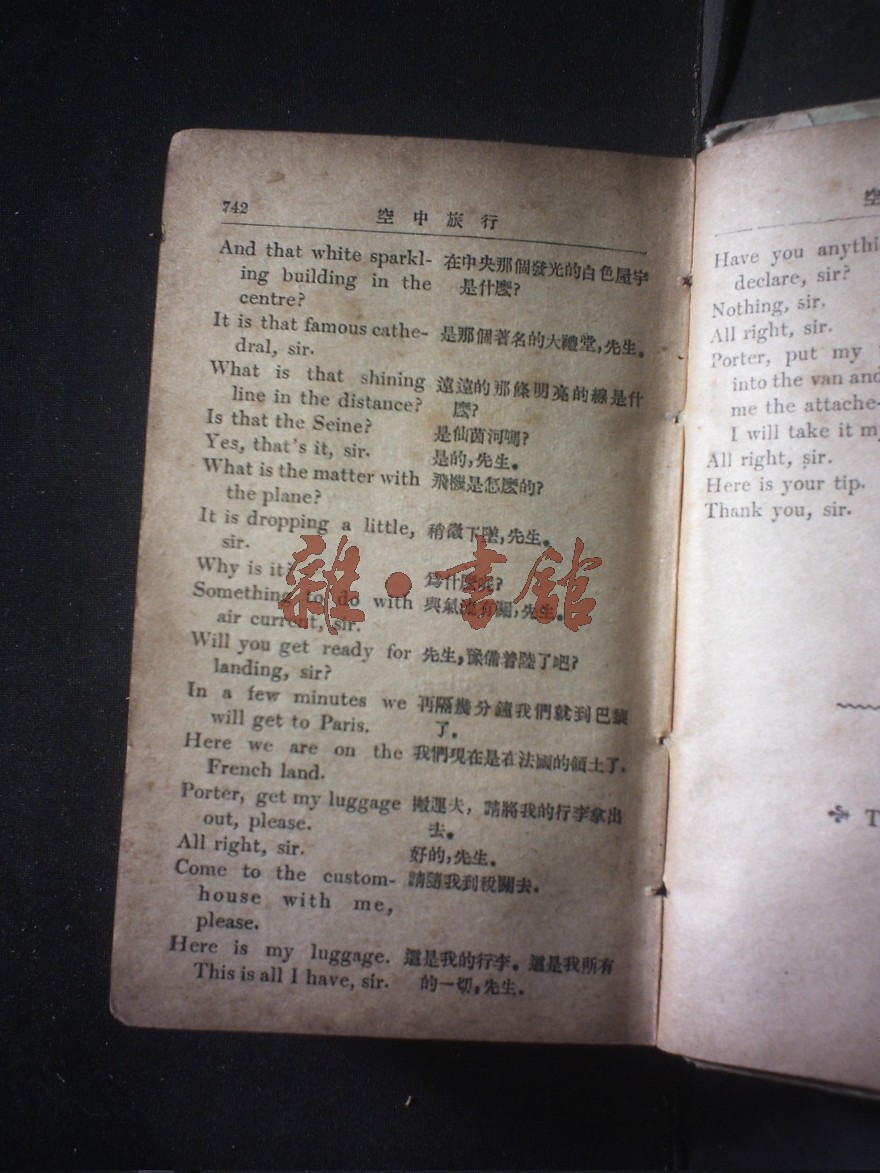 742
空中旅行
And that white sparkl-
ing building in the
centre?
在中央那個發光的白色屋宇
是什麼?
It is that famous cathe-
dral, sir.
是那個著名的大禮堂,先生。
What is that shining
line in the distance?
遠遠的那條明亮的線是什
麼?
Is that the Seine?
是仙茵河嗎?
Yes, that's it, sir.
是的,先生。
What is the matter with
the plane?
飛機是怎麼的?
It is dropping a little,
sir.
稍微下墜,先生。
Why is it?
爲什麼呢?
Something to do with
air current, sir.
與氣流有關,先生。
Will you get ready for
landing, sir?
先生,豫備着陸了吧?
In a few minutes we
will get to Paris.
再隔幾分鐘我們就到巴黎
了。
Here we are on the
French land.
我們現在是在法國的領土了.
Porter, get my luggage
out, please.
搬運夫,請將我的行李拿出
去。
All right, sir.
好的,先生。
Come to the custom-
house with me,
please.
請隨我到稅關去。
Here is my luggage.
This is all I have, sir.
這是我的行李。這是我所有
的一切,先生。
雜·書館
空
Have you anythi
declare, sir?
Nothing, sir.
All right, sir.
Porter, put my
into the van and
me the attache-
I will take it my
All right, sir.
Here is your tip.
Thank you, sir.
T